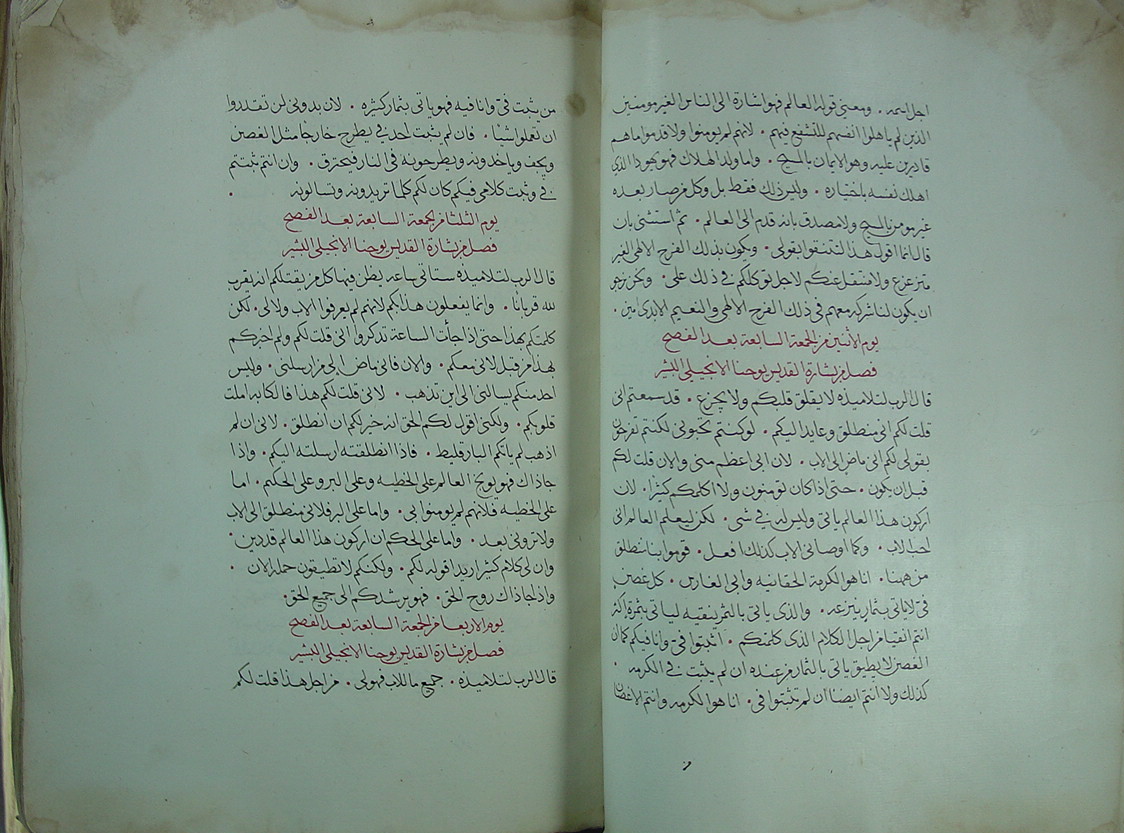 اجل اسمه . ومعني قوله العالم فهو اشارة الى الناس الغير مومنين
الذين لم ياهلوا انفسهم للتشفع فيهم . لانهم لم يومنوا ولا قدموا ما هم
قادرين عليه وهو الايمان بالمسيح . واما ولد الهلاك فهو يهودا الذي
اهلك نفسه باختياره . وليس ذلك فقط بل وكل من صار بعده
غير مومن بالمسيح ولا مصدق بانه قدم الى العالم . ثم استثنى بان
قال انما اقول هذا لتتنقوا بقولي . ويكون بذلك الفرح الالهي الغير
متزعزع ولا منتقل عنكم لاجل توكلكم في ذلك على . ونحن نرجو
ان يكون لنا شركه معهم في ذلك الفرح الالهي والنعيم الابدي امين .
يوم الاثنين من الجمعة السابعة بعد الفصح
فصل من بشارة القديس يوحنا الانجيلي البشير
قال الرب لتلاميذه لا يقلق قلبكم ولا يجزع . قد سمعتم اني
قلت لكم اني منطلق وعايد اليكم . لو كنتم تحبوني لكنتم تفرحون
بقولي لكم اني ماض الى الاب . لان ابي اعظم مني والان قلت لكم
قبل ان يكون . حتى اذا كان تومنون ولا اكلمكم كثيرا . لان
اركون هذا العالم ياتي وليس له في شي . لكن ليعلم العالم اني
احب الاب . وكما اوصاني الاب كذلك افعل . قوموا بنا ننطلق
من ههنا . انا هو الكرمة الحقانيه وابي الغارس . كل غصن
في لا ياتي بثمار ينزعه . والذي ياتي بالثمر ينقيه لياتي بثمرة اكثر
انتم انقيا من اجل الكلام الذي كلمتكم . اثبتوا في وانا فيكم كما ان
الغصن لا يطيق ياتي بالثمار من عنده ان لم يثبت في الكرمه .
كذلك ولا انتم ايضا ان لم تثبتوا في . انا هو الكرمه وانتم الاغصان
من يثبت في وانا فيه فهو ياتي بثمار كثيره . لان بدوني لن تقدروا
ان تعملوا شيا . فان لم يثبت احد في يطرح خارجا مثل الغصن
ويجف وياخدونه ويطرحونه في النار فيحترق . وان انتم ثبتتم
في وثبت كلامي فيكم كان لكم كلما تريدونه وتسالونه .
يوم الثلثا من الجمعة السابعة بعد الفصح
فصل من بشارة القديس يوحنا الانجيلي البشير
قال الرب لتلاميذه ستاتي ساعه يظن فيها كل من يقتلكم انه يقرب
لله قربانا . وانما يفعلون هذا بكم لانهم لم يعرفوا الاب ولا لي . لكن
كلمتكم بهذا حتى اذا جأت الساعة تدكروا اني قلت لكم ولم اخبركم
بهذا من قبل لاني معكم . والان فاني ماض الى من ارسلني . وليس
احد منكم يسالني الى اين تذهب . لاني قلت لكم هذا فالكابه املت
قلوبكم . ولكني اقول لكم الحق انه خير لكم ان انطلق . لاني ان لم
اذهب لم ياتكم البارقليط . فاذا انطلقت ارسلته اليكم . واذا
جا ذاك فهو يوبخ العالم على الخطيه وعلى البر وعلى الحكم . اما
على الخطيه فلانهم لم يومنوا بي . واما على البر فلاني منطلق الى الاب
ولا تروني بعد . واما على الحكم ان اركون هذا العالم قد دين .
وان لي كلام كثير اريد اقوله لكم . ولكنكم لا تطيقون حمله الان .
واذا جا ذاك روح الحق . فهو يرشدكم الى جميع الحق .
يوم الاربعا من الجمعة السابعة بعد الفصح
فصل من بشارة القديس يوحنا الانجيلي البشير
قال الرب لتلاميذه . جميع ما للاب فهو لي . من اجل هذا قلت لكم